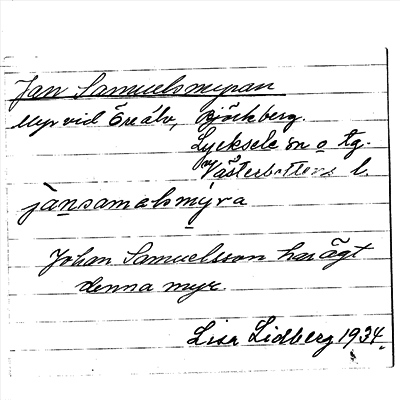 Jan Samuelsmyran
Myr vid Öreälv, Björkberg.
Lycksele sn o tg.
Västerbottens l.
jànsaməlsmýra
Johan Samuelsson har ägt
denna myr.
Lisa Lidberg 1934.